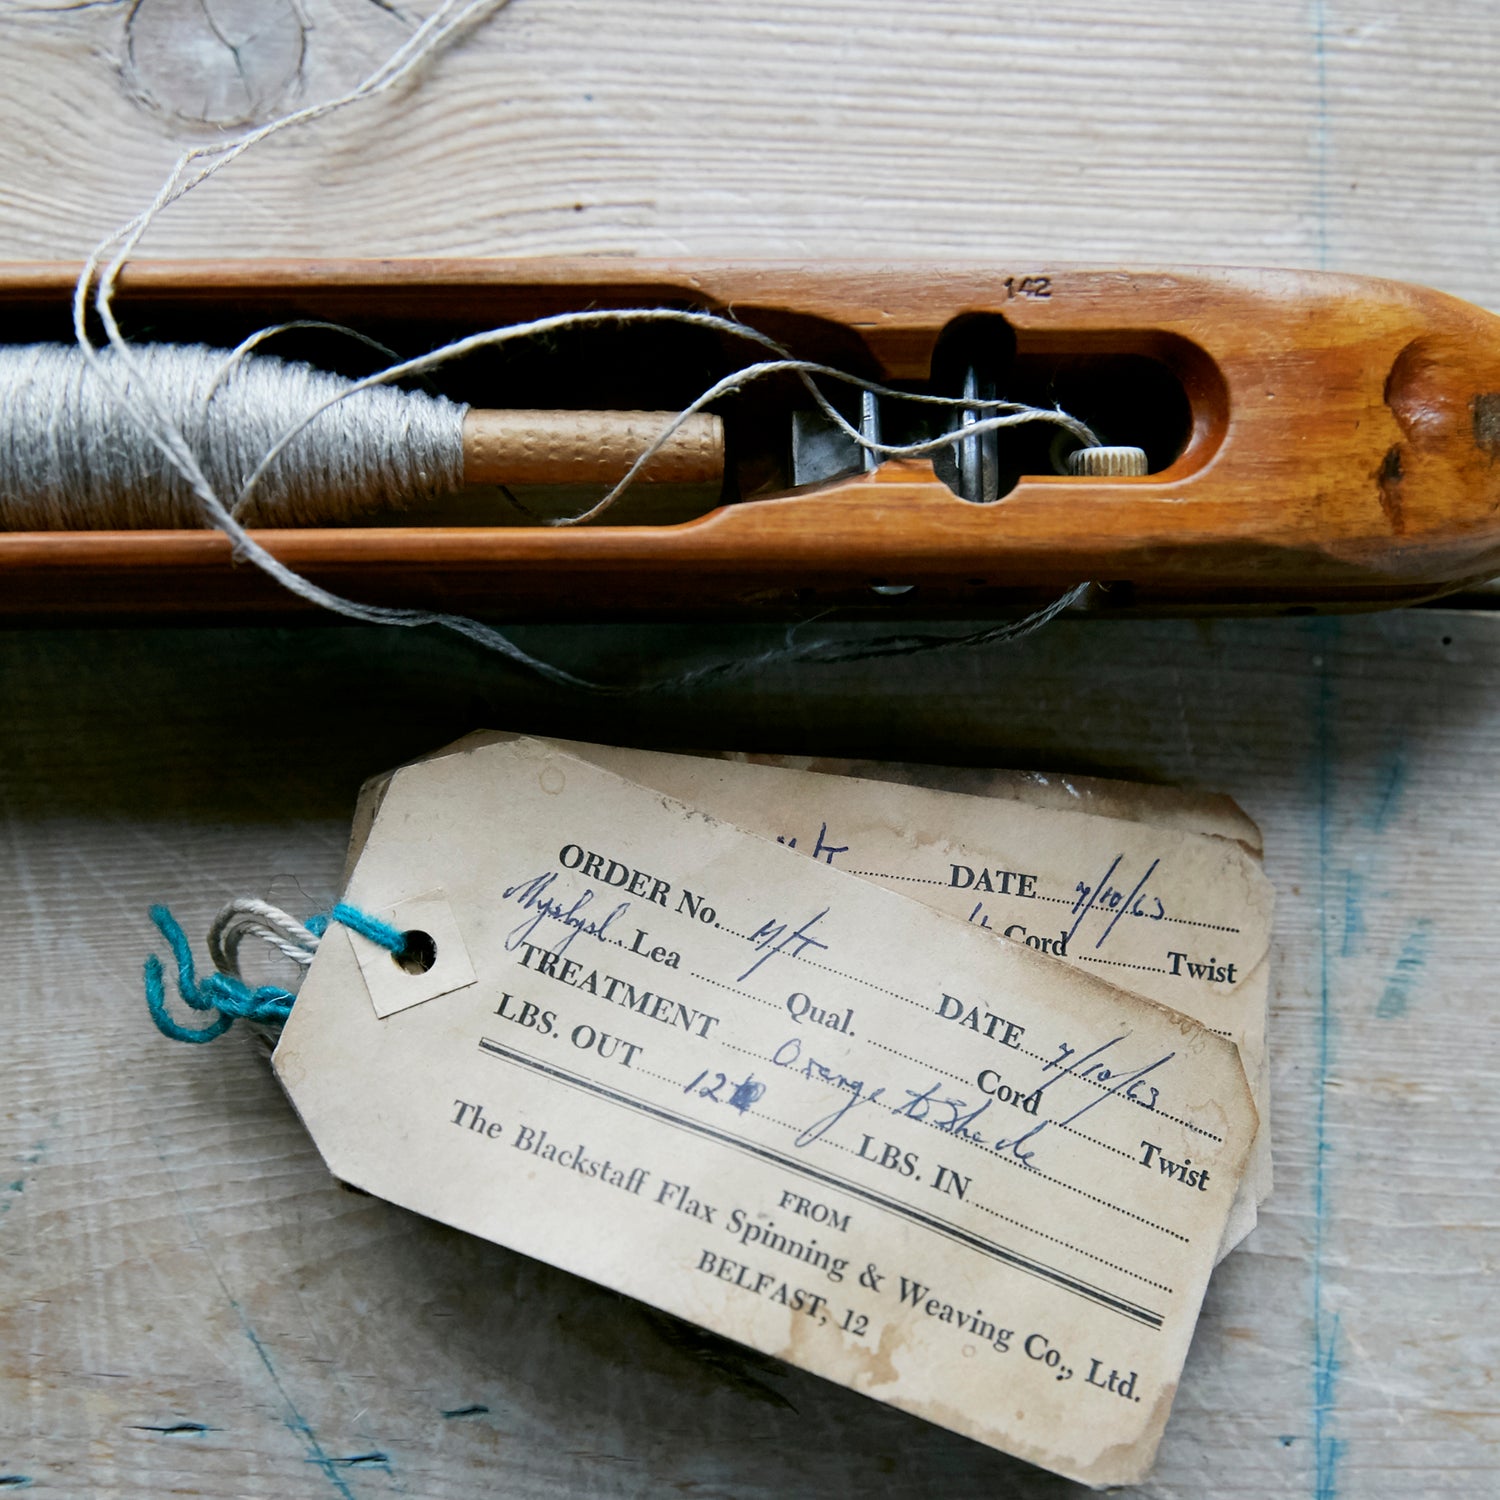 142
DATE 7/10/63
Cord Twist
ORDER No. H/T DATE 7/10/63
Lea Qual. Cord Twist
TREATMENT Orange to Shade
LBS. OUT 12 LBS. IN
FROM
The Blackstaff Flax Spinning & Weaving Co., Ltd.
BELFAST, 12